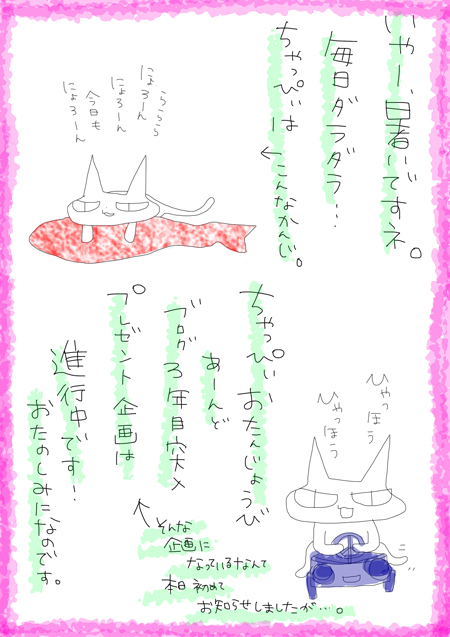 いやー、暑いですネ。
毎日ダラダラ…
ちゃっぴぃは
←こんなかんじ。
ららら
にょろーん
にょろーん
今日も
にょろーん
ちゃっぴぃおたんじょうび
あーんど
ブログ3年目突入
プレゼント企画は
進行中です!
おたのしみになのです。
ひゃっほう
ひゃっほう
←そんな
企画に
なっているなんて
本日初めて
お知らせしましたが…。